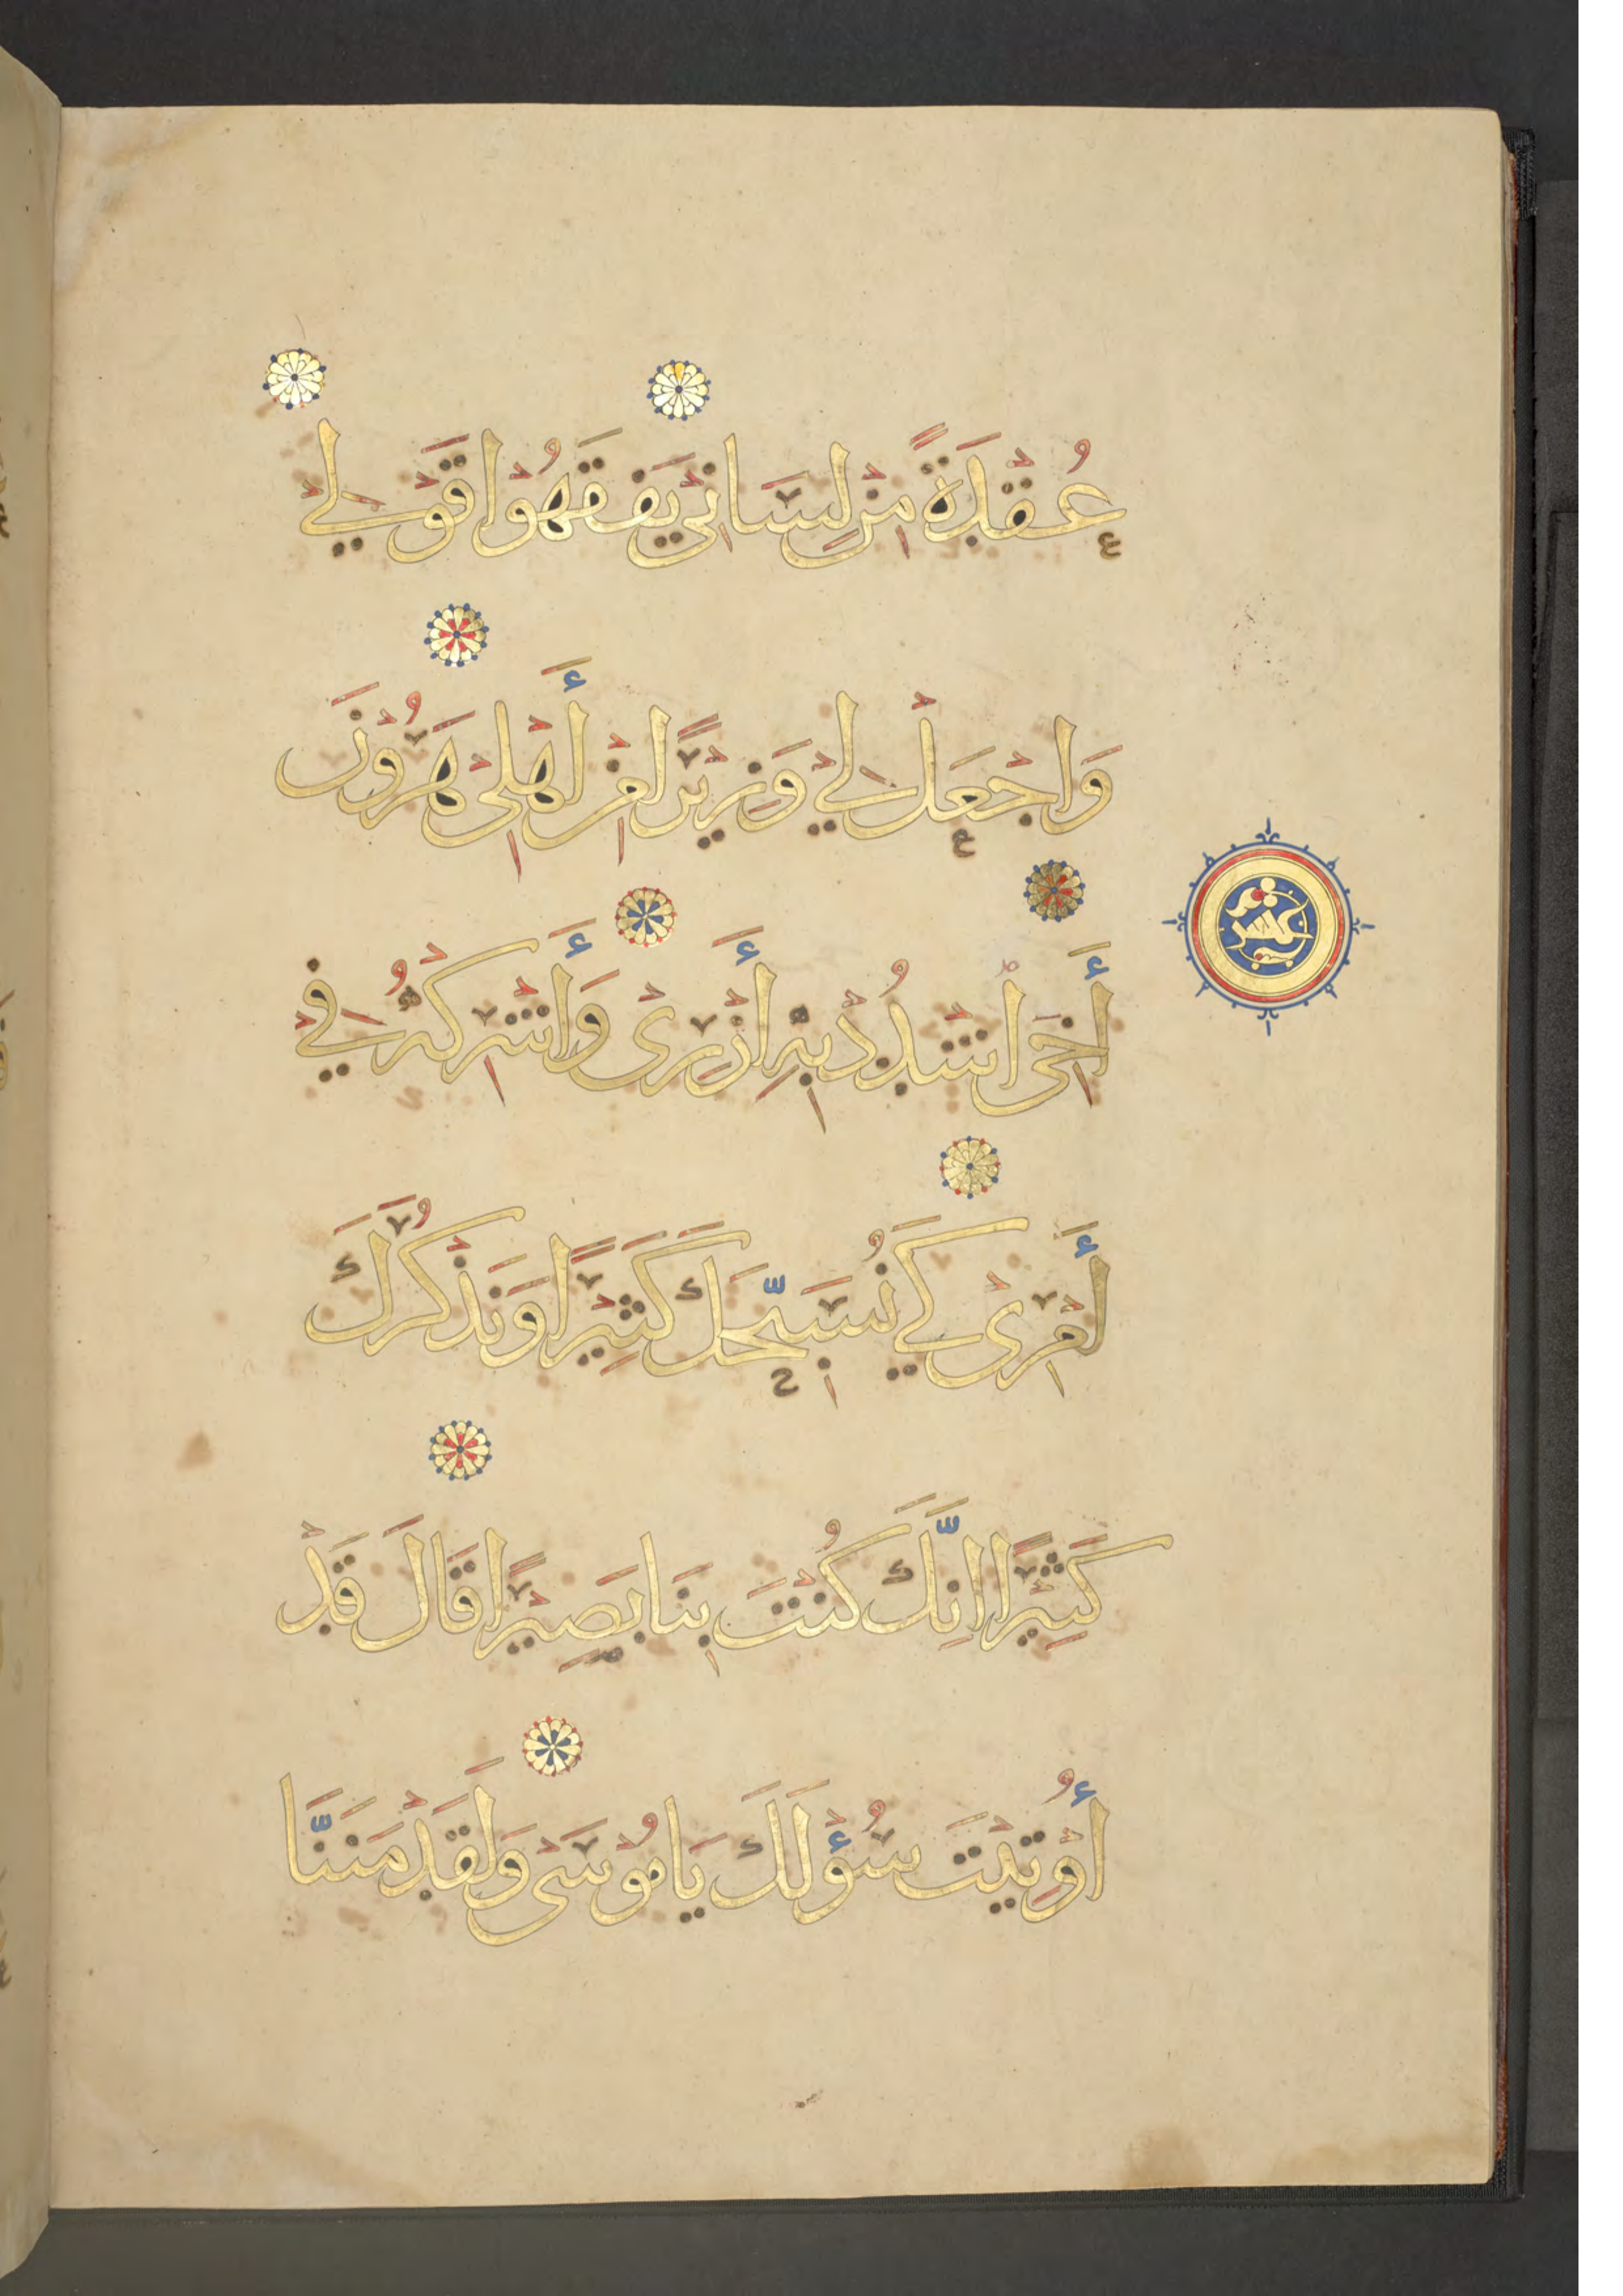 عُقْدَةً مِنْ لِسَانِي يَفْقَهُوا قَوْلِي
وَاجْعَلْ لِي وَزِيْرًا مِنْ أَهْلِي هَرُوْنَ
أَخِي اشْدُدْ بِهِ أَزْرِي وَأَشْرِكْهُ فِي
أَمْرِي كَيْ نُسَبِّحَكَ كَثِيْرًا وَنَذْكُرَكَ
كَثِيْرًا إِنَّكَ كُنْتَ بِنَا بَصِيْرًا قَالَ قَدْ
أُوتِيْتَ سُؤْلَكَ يَا مُوْسَى وَلَقَدْ مَنَنَّا
عشر